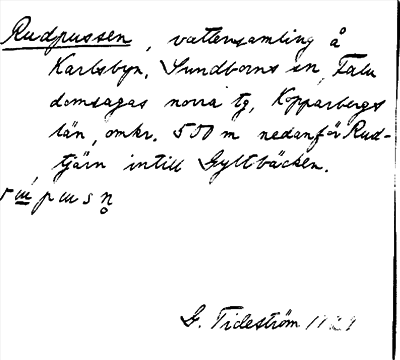 Rudpussen, vattensamling å
Karlsbyn, Sundborns sn, Falu
domsagas norra tg, Kopparbergs
län, omkr. 550 m nedanför Rud-
tjärn intill Gyltbäcken.
G. Tideström